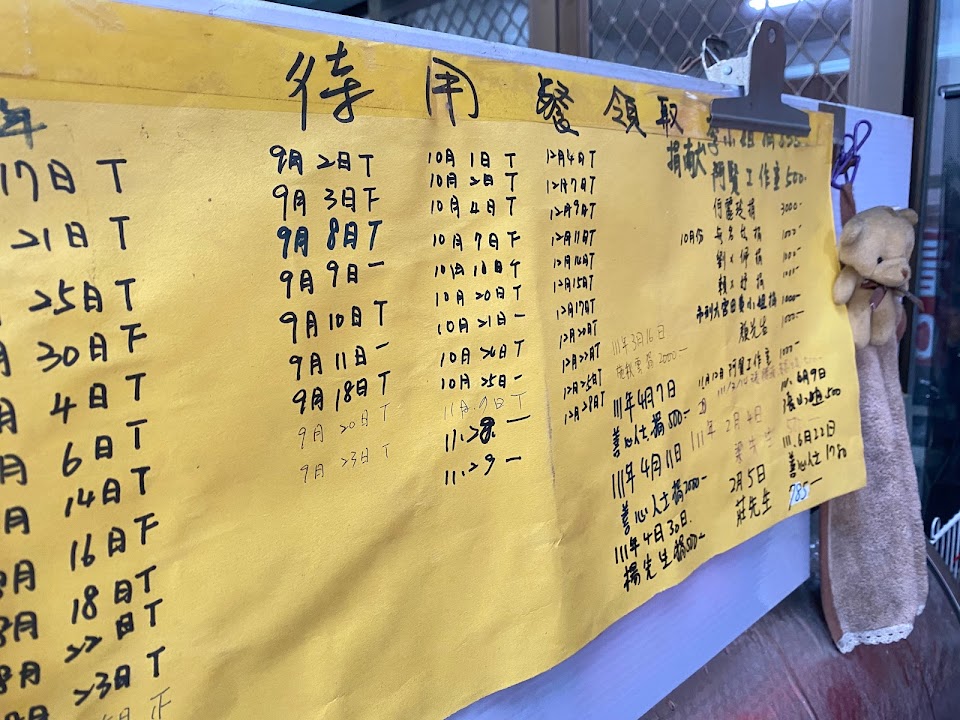 待用餐領取
年
17日T
21日T
25日T
30日F
4日T
6日T
14日T
月 16日F
8月 18日T
8月 22日T
23日T
9月2日T
9月3日F
9月8日T
9月9日一
9月10日T
9月11日一
9月18日T
9月20日T
9月23日T
10月1日T
10月2日T
10月4日T
10月7日F
10月20日T
10月21日一
10月25日一
11月7日T
11.29一
12月4日T
12月7日T
12月9日T
12月11日T
12月15日T
12月17日T
12月20日T
12月22日T
12月25日T
捐献 阿賢工作室500.
3000-
10月份 無名氏捐 1000-
顏先生 1000-
11月12日 阿賢工作室 1000-
111年3月16日
2000-
111年4月7日
善心人士捐500-
111年4月11日
善心人士捐2000-
111年4月30日.
楊先生捐500-
111年2月4日
2月5日
莊先生 785.-
111.6月9日
500
111.6月22日
善心人士